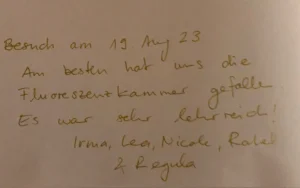 Besuch am 19 Aug 23
Am besten hat uns die
Fluoreszenzkammer gefallen
Es war sehr lehrreich!
Irma, Lea, Nicole, Rahel
& Regula